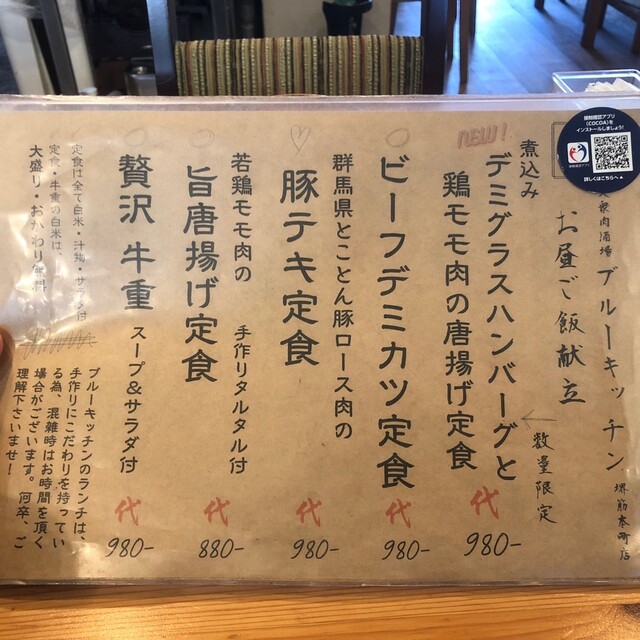 接触確認アプリ
(COCOA)を
インストールしましょう!
詳しくはこちらへ▲
衆肉酒場 ブルーキッチン 堺筋本町店
お昼ご飯献立
数量限定
NEW!
煮込み
デミグラスハンバーグと
鶏モモ肉の唐揚げ定食
代 980-
ビーフデミカツ定食
代 980-
群馬県とことん豚ロース肉の
豚テキ定食
代 980-
若鶏モモ肉の 手作りタルタル付
旨唐揚げ定食
代 880-
贅沢 牛重 スープ&サラダ付
代 980-
定食は全て白米・汁物・サラダ付
定食・牛重の白米は、
大盛り・おかわり無料
ブルーキッチンのランチは、
手作りにこだわりを持ってい
る為、混雑時はお時間を頂く
場合がございます。何卒、ご
理解下さいませ!